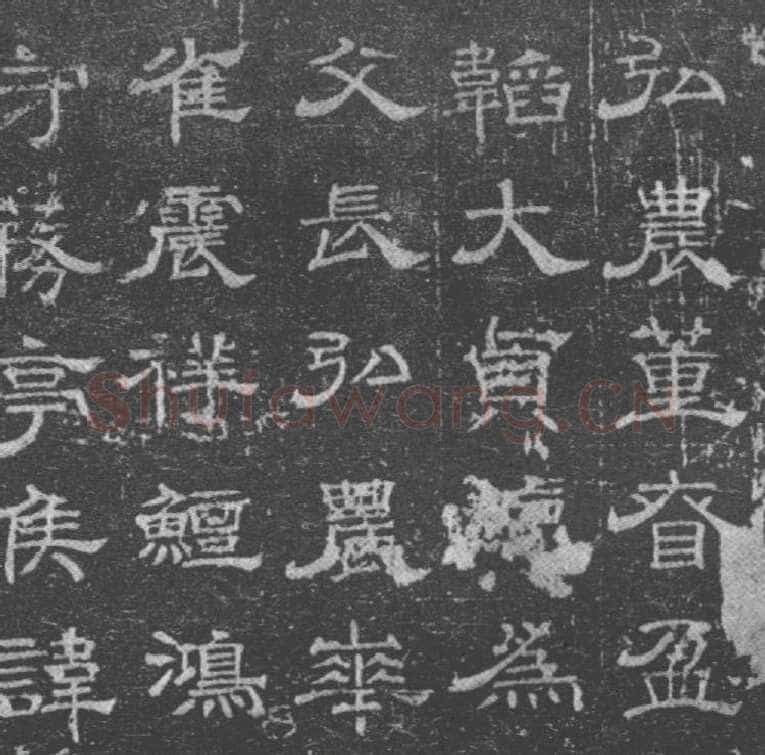 弘農董眘盈
韜大貞為
父長弘農華
雀震祥鱣鴻
守蓩亭侯諱
Shufawang.CN